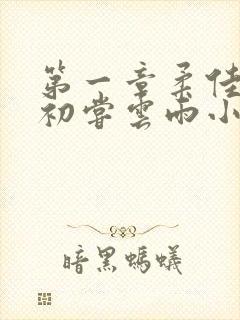 第一章柔佳
初尝云雨小
暗黑螞蟻